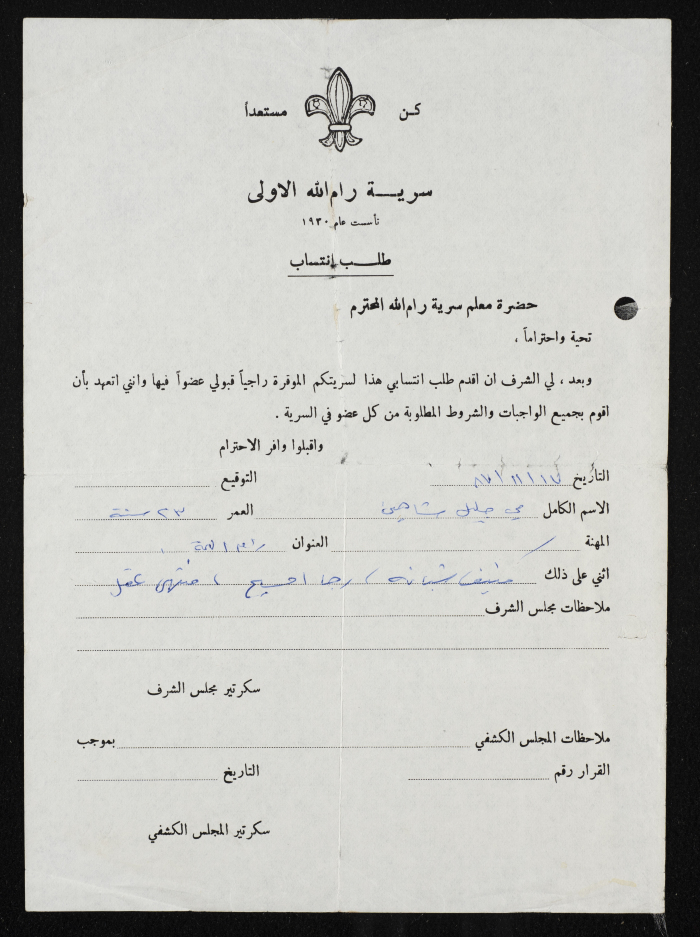 كن مستعداً
سريـــة رام الله الاولى
تأسست عام ١٩٣٠
طلـــب إنتساب
حضرة معلم سرية رام الله المحترم
تحية واحتراماً ،
وبعد ، لي الشرف ان اقدم طلب انتسابي هذا لسريتكم الموقرة راجياً قبولي عضواً فيها وانني اتعهد بأن
اقوم بجميع الواجبات والشروط المطلوبة من كل عضو في السرية .
واقبلوا وافر الاحترام
التأريخ ٨٧/١١/١٧ التوقيع
الاسم الكامل مي خليل شاهين العمر ٢٣ سنة
المهنة / العنوان رام الله .
اثني على ذلك شبانه / رجا ، منتهى عقل
ملاحظات مجلس الشرف
سكرتير مجلس الشرف
ملاحظات المجلس الكشفي بموجب
القرار رقم التاريخ
سكرتير المجلس الكشفي